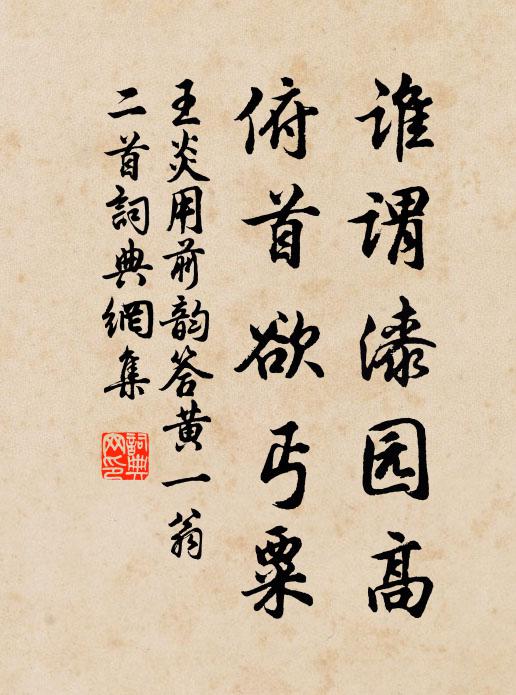 谁谓漆园高
俯首欲丐粟
王炎用前韵答黄一翁
二首詞典網集
詞典网印